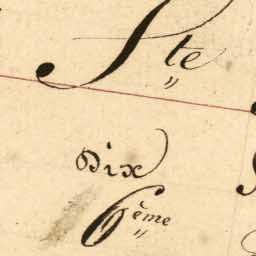 Ste
Dix
6ème